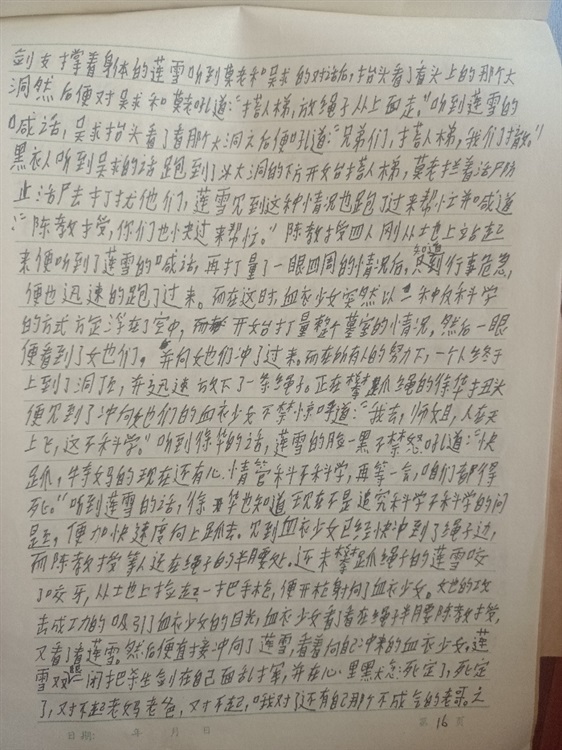 剑支撑着身体的莲雪听到莫老和吴求的对话后,抬头看了看头上的那个大
洞然后便对吴求和莫老吼道:“搭人梯,放绳子从上面走。”听到莲雪的
喊话,吴求抬头看了看那个大洞之后便吼道:“兄弟们,搭人梯,我们撤。”
黑衣人听到吴求的话跑到了洞的下方开始搭人梯,莫老拦着活尸防
止活尸去打扰他们,莲雪见到这种情况也跑了过来帮忙并喊道
:“陈教授,你们也快过来帮忙。”陈教授四人刚从地上站起
来便听到了莲雪的喊话,再打量了一眼四周的情况后,知道行事危急,
便也迅速的跑了过来。而在这时,血衣少女突然以一种反科学
的方式方定浮在了空中,而开始打量整个墓室的情况,然后一眼
便看到了女他们。并向她们冲了过来。而在所有人的努力下,一个人终于
上到了洞顶,并迅速放下了一条绳子。正在攀爬绳的徐华扭头
便见到了冲向她们的血衣少女不禁惊呼道:“我去,师姐,人在天
上飞,这不科学。”听到徐华的话,莲雪的脸一黑不禁怒吼道:“快
爬,牛李妈的现在还有心情管科不科学,再等一会,咱们都得
死。”听到莲雪的话,徐华也知道现在不是追究科学不科学的问
题,便加快速度向上爬去。见到血衣少女已经快冲到了绳子边,
而陈教授等人还在绳子的半腰处。还未攀爬绳子的莲雪咬
了咬牙,从地上捡起一把手枪,便开枪射向了血衣少女。她的攻
击成功的吸引了血衣少女的目光,血衣少女看了看在绳子半腰陈教授,
又看了看莲雪。然后便直接冲向了莲雪,看着向自己冲来的血衣少女,莲
雪双眼一闭把伞剑在自己面乱打挥,并在心里黑犬念:死定了,死定
了,对不起老妈老爸,对不起,哦对了还有自己那个不成气的老哥。之
日期: 年 月 日
第 16 页